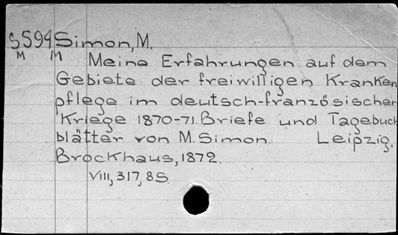 S594 Simon, M.
M M Meine Erfahrungen auf dem
Gebiete der freiwilligen Kranken
pflege im deutsch-französischen
Kriege 1870-71. Briefe und Tagebuch
blätter von M. Simon. Leipzig,
Brockhaus, 1872.
VIII, 317, 8 S.